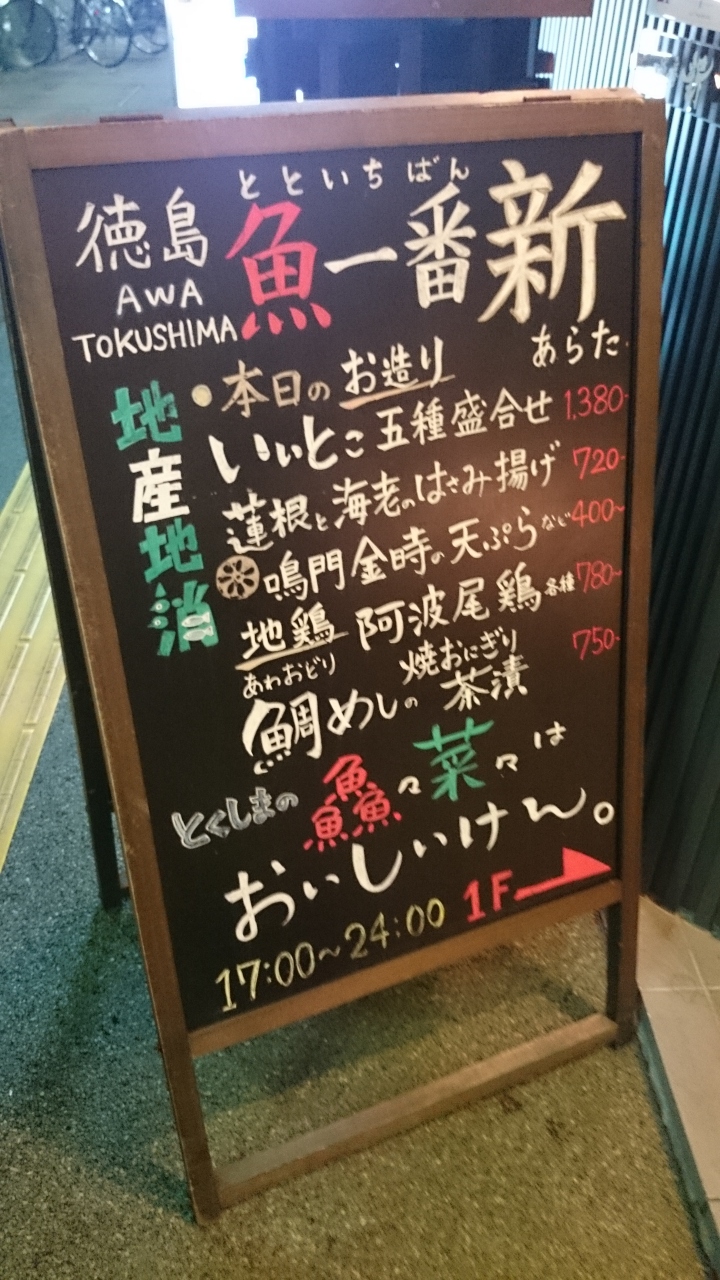 とといちばん
徳島 魚一番 新
AWA
TOKUSHIMA
あらた
地産地消
本日の お造り
いいとこ五種盛合せ 1,380-
蓮根と海老のはさみ揚げ 720-
鳴門金時の天ぷらなど 400~
地鶏 阿波尾鶏 各種 780~
あわおどり
鯛めしの 焼おにぎり茶漬 750-
とくしまの 鱻々菜々は
おいしいけん。
17:00~24:00 1F